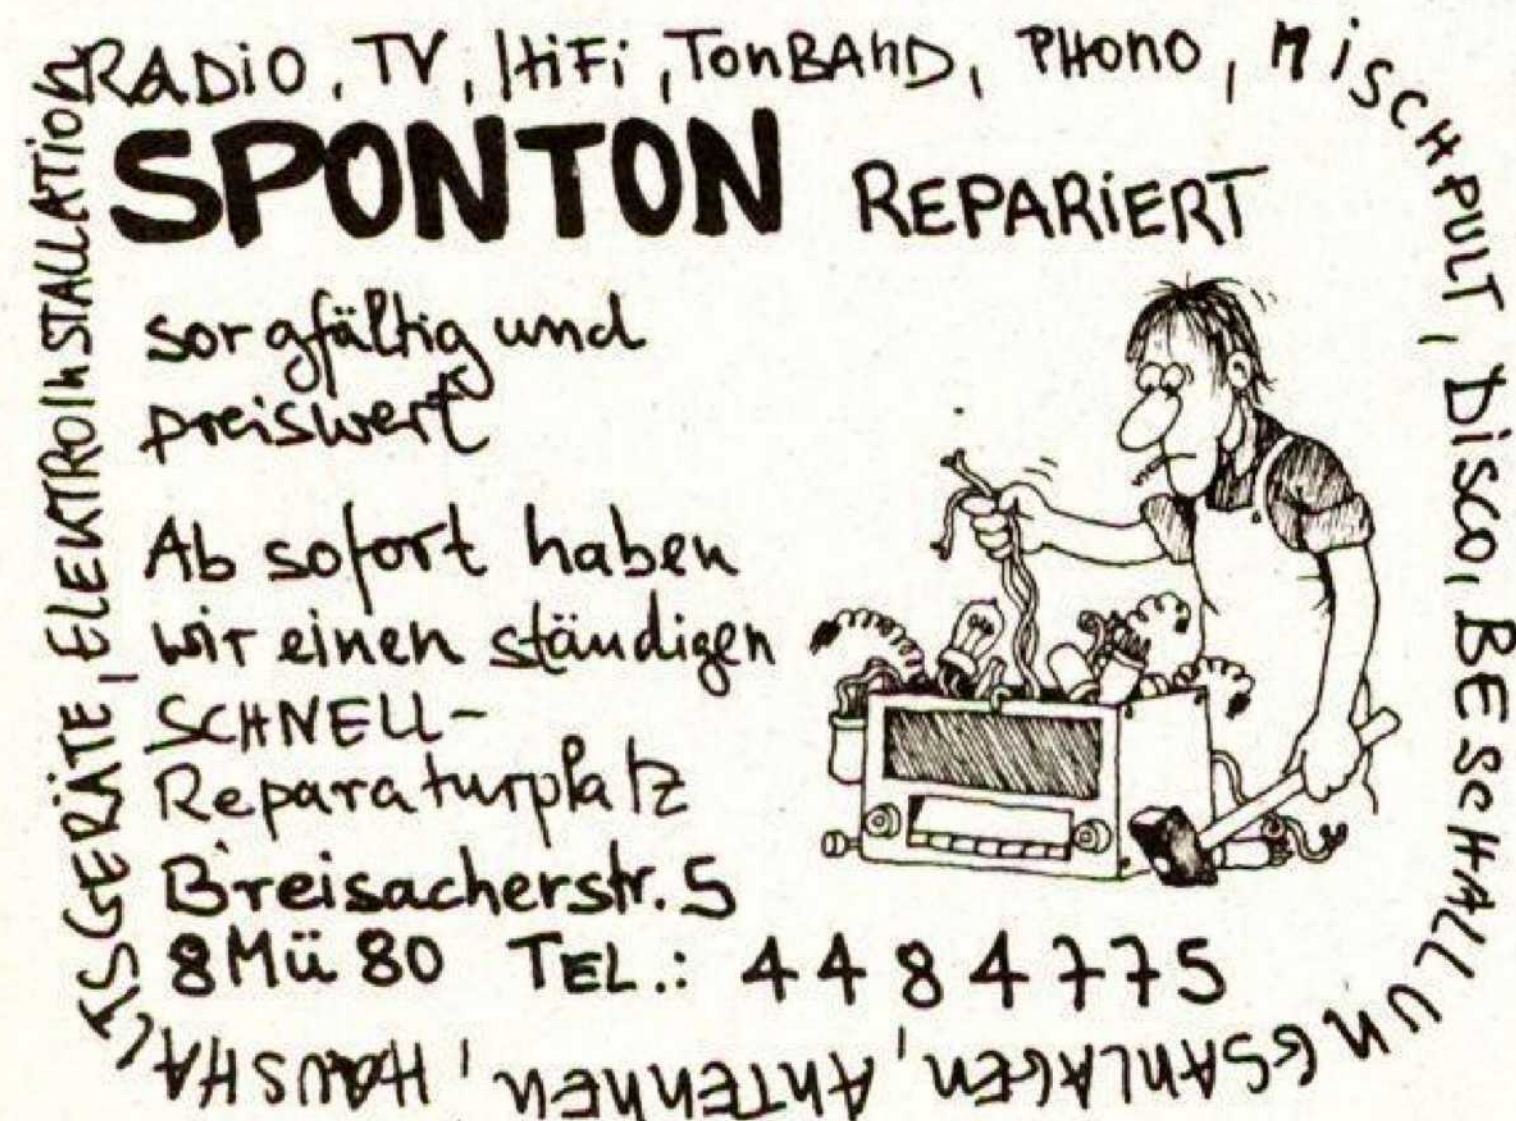 RADiO, TV, HiFi, TonBAnD, PHOnO, MiSCHPULT, DiSCO, BESCHALLUnGSANLAGEN, ANTENNEN, HAUSHALTSGERÄTE, ELEKTROInSTALLATION
SPONTON REPARiERT
sorgfältig und
preiswert
Ab sofort haben
wir einen ständigen
SCHNELL-
Reparaturplatz
Breisacherstr. 5
8 Mü 80 TEL.: 4484775